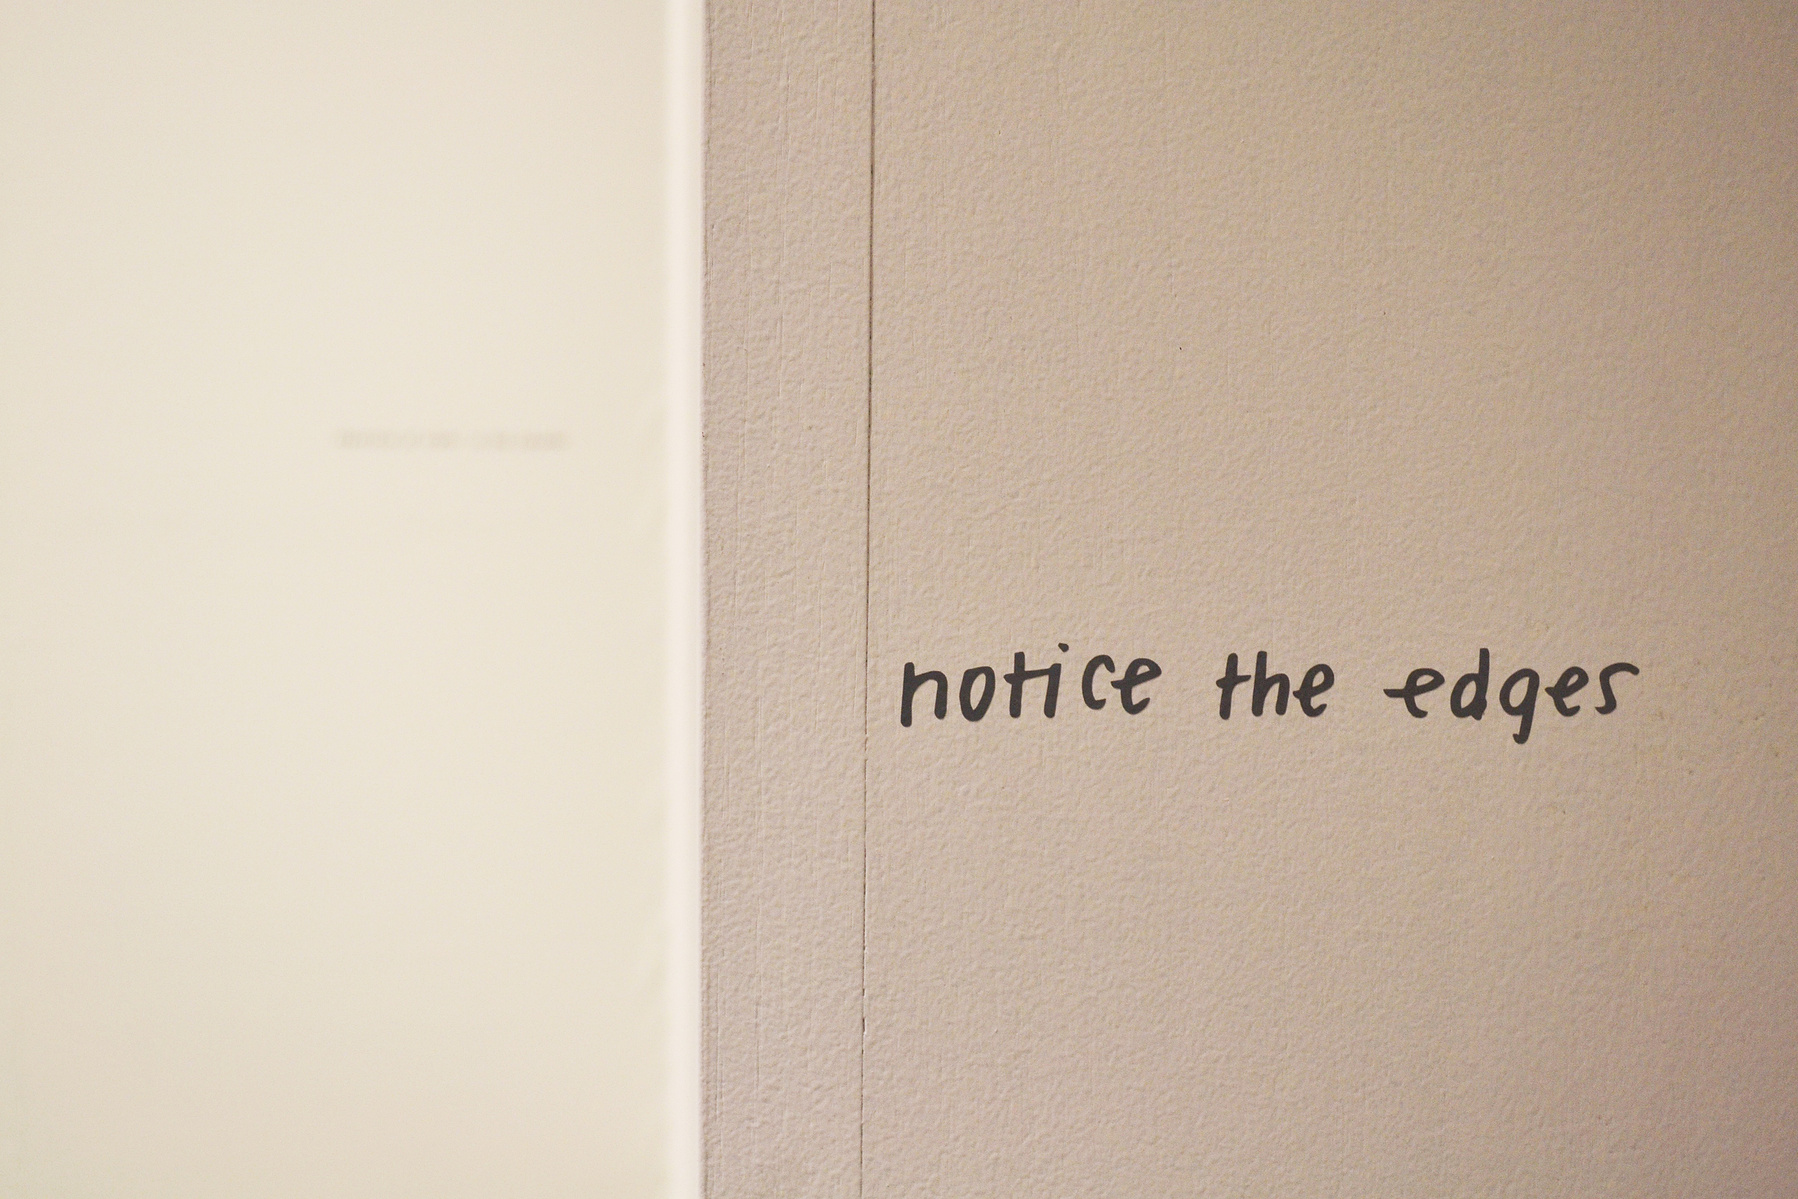 notice the edges